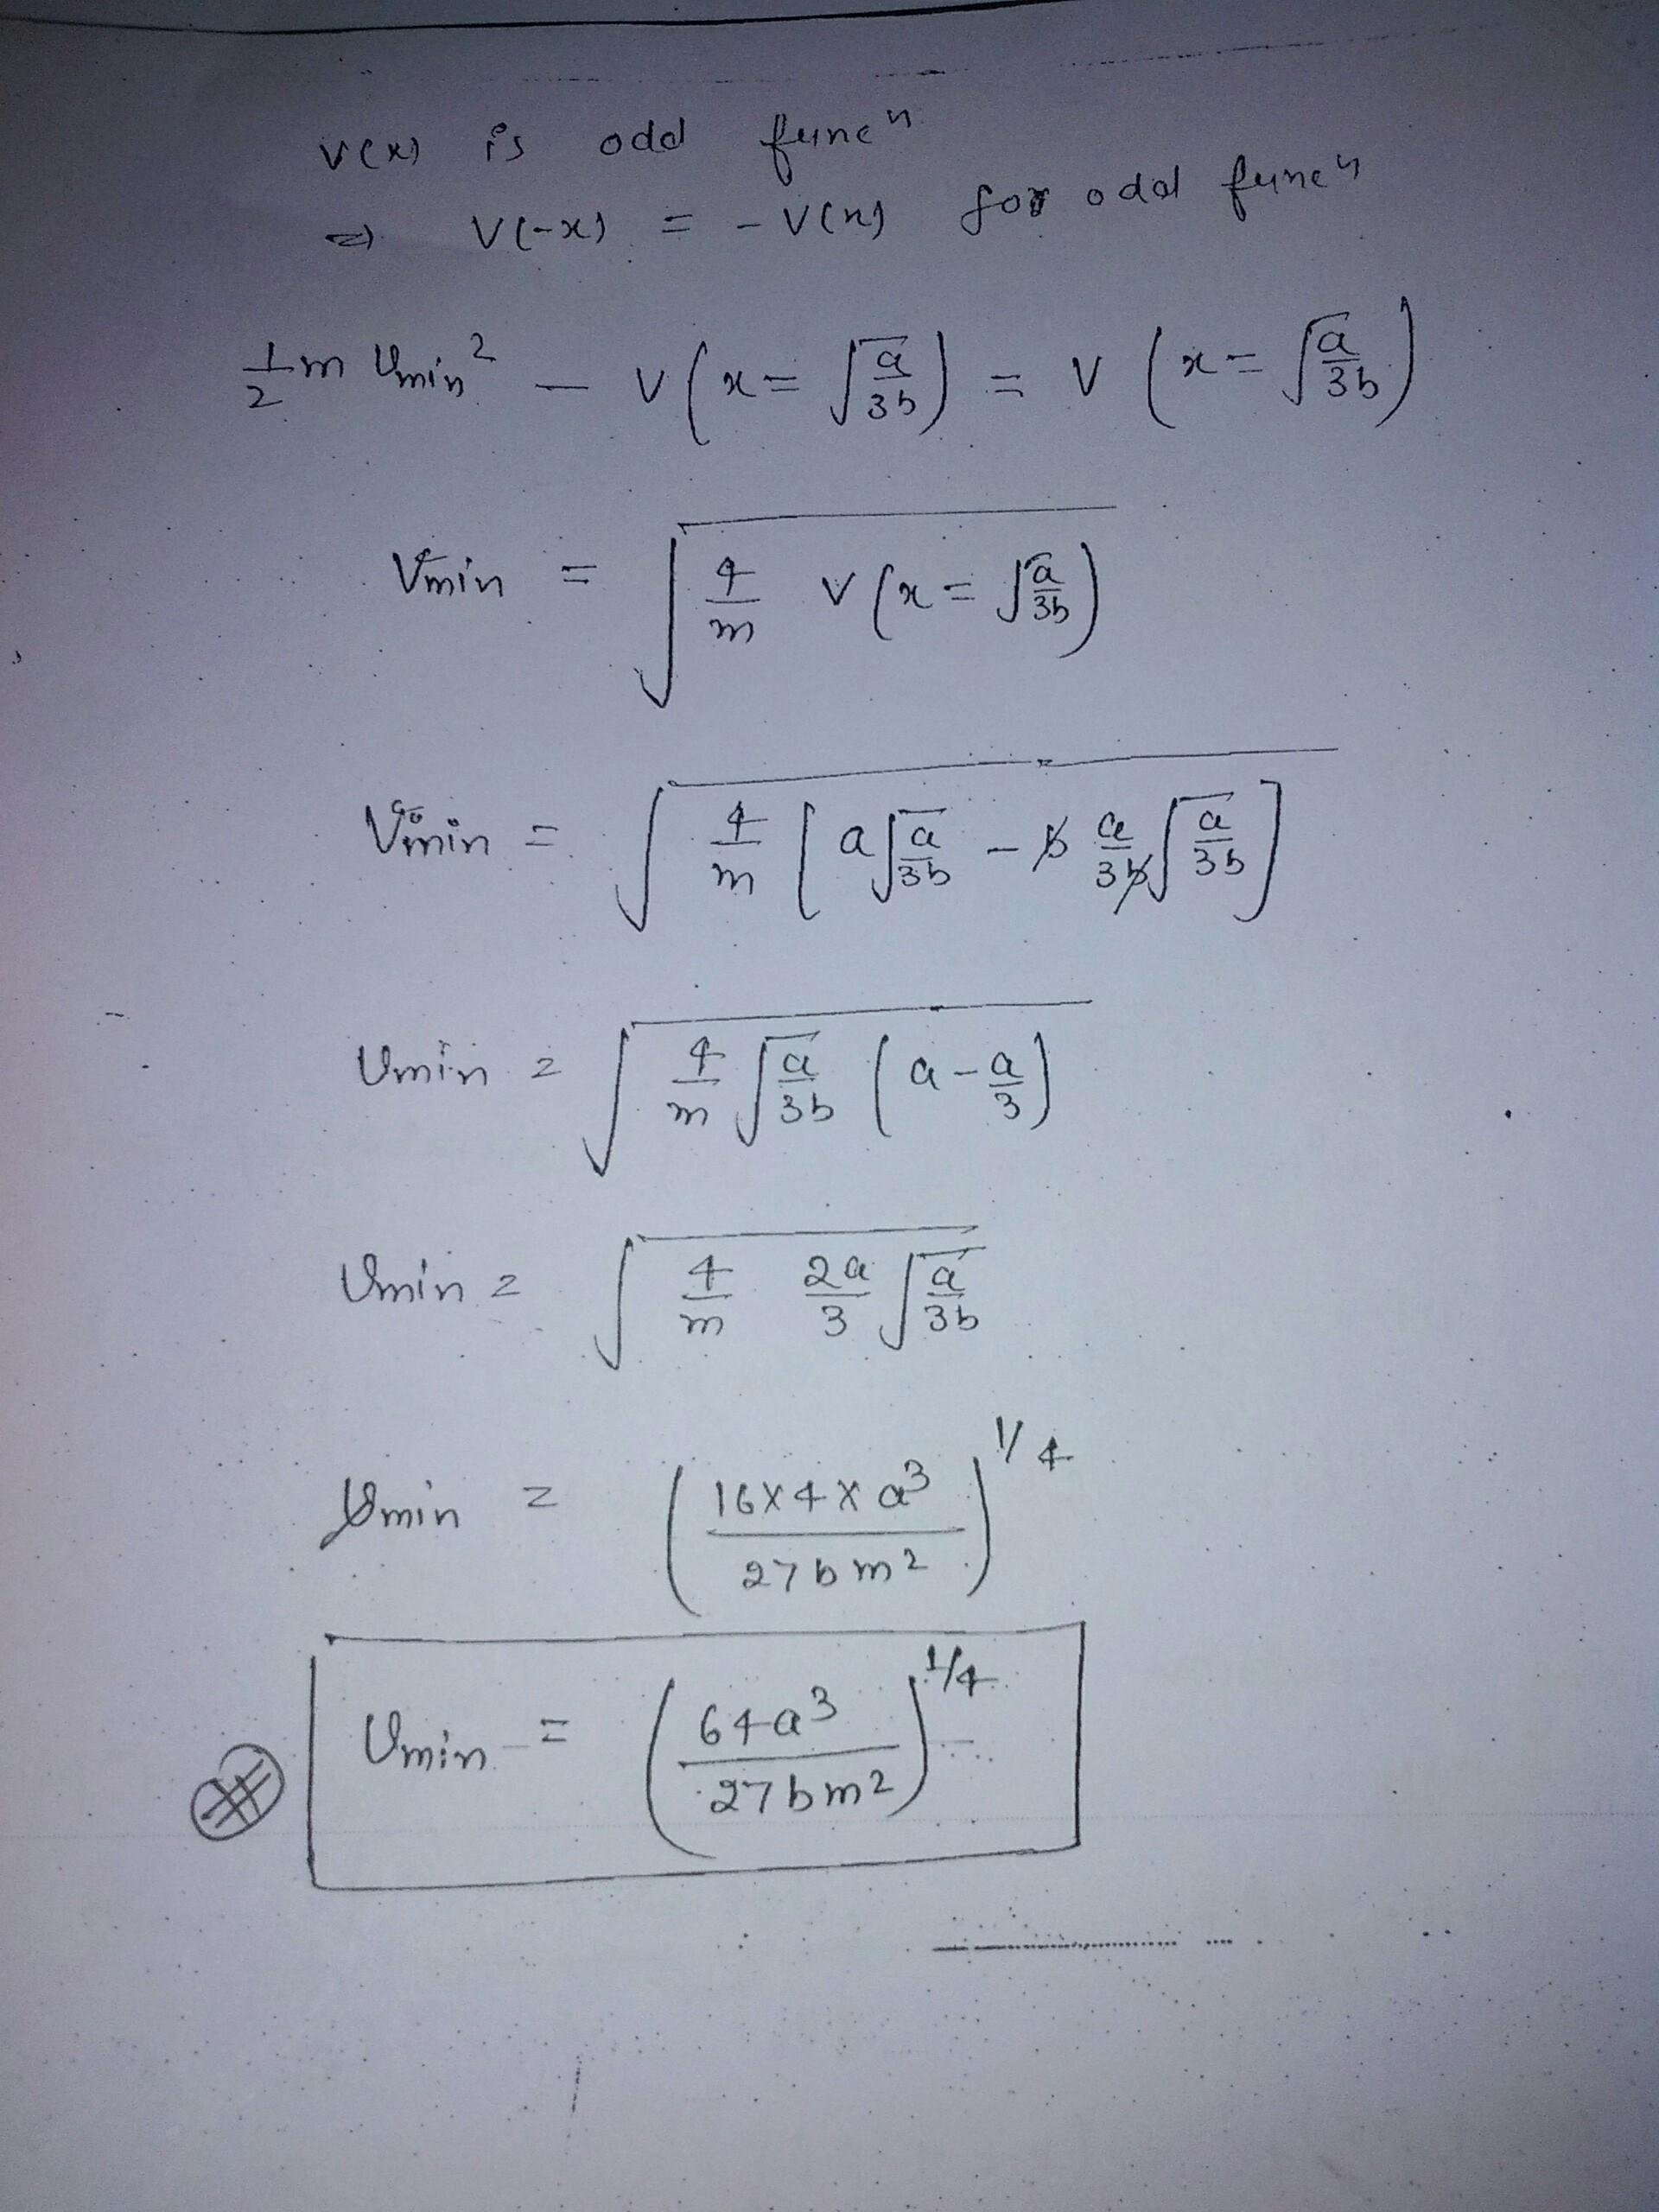 V(x) is odd funcⁿ
⇒ V(-x) = - V(x) for odd funcⁿ
1/2 m vmin² - V(x = √(a/3b)) = V(x = √(a/3b))
vmin = √(4/m V(x = √(a/3b)))
vmin = √(4/m [a√(a/3b) - b a/3b √(a/3b)])
vmin = √(4/m √(a/3b) (a - a/3))
vmin = √(4/m 2a/3 √(a/3b))
vmin = (16×4×a³ / 27bm²)^1/4
vmin = (64a³ / 27bm²)^1/4